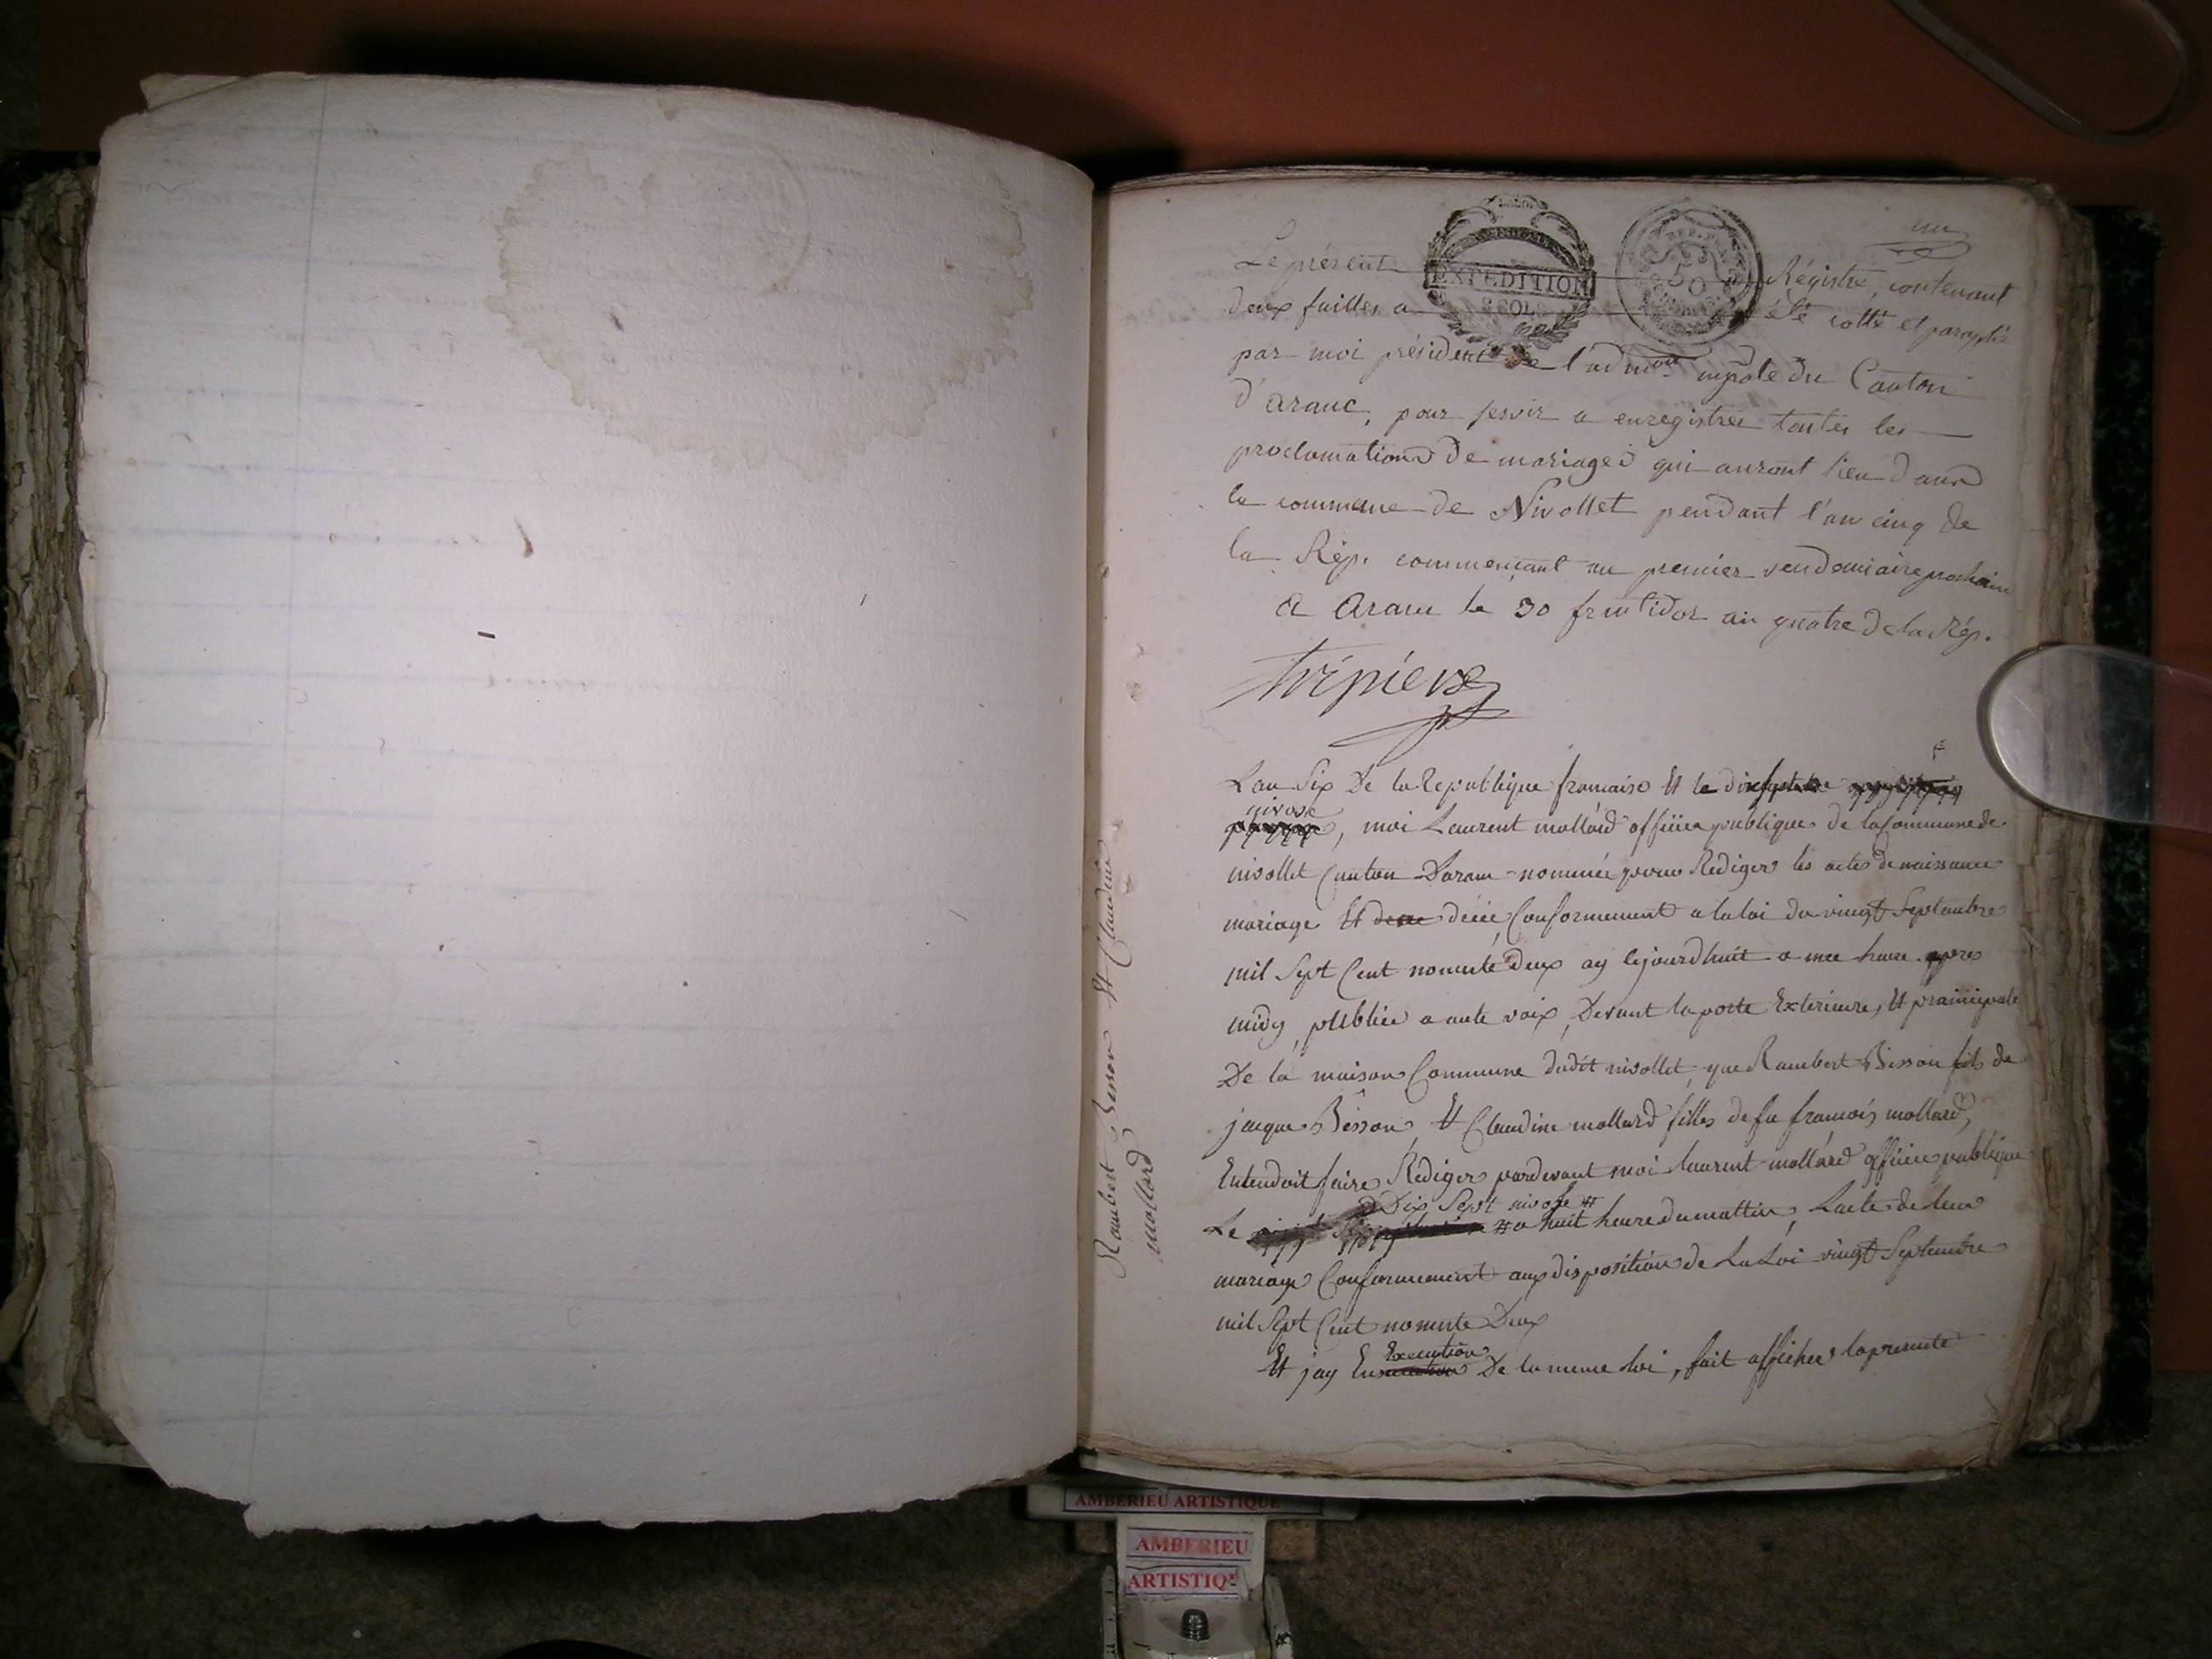 un
Le présent Régistre, contenant
EXPEDITION
50
deux fuilles a été cotté et paraphé
par moi président de l'admon mpale du Canton
d'aranc, pour servir a enregistrer toutes les
proclamations de mariages qui auront lieu dans
la commune de Nivollet pendant l'an cinq de
la Rép. commençant au premier vendemiaire prochain
a aranc le 30 fructidor an quatre de la Rép.
tripier
Lan Six De la Republique francaise Et le dixseptre
nivose
, moi Laurent mollard officier publique de la Commune de
nivollet Canton Daranc nommée pour Rediger les actes de naissance
mariage Et décée, Conformement a la loi du vingt Septembre
mil Sept Cent nonente Deux ay cejourdhuit a une heure apres
midy publiée a aute voix, Devant la porte Exterieure, Et prainiepale
De la maison Commune dudit nivollet, que Rambert Bisson fils de
jaque Bésson, Et Claudine mollard filles de fu francois mollard,
Entendoit faire Rédiger pardevant moi laurent mollard officier publique
Dix Sept nivose #
Le # a huit heure du mattin, Lacte de leur
mariage Conformement aux disposition de La Loi vingt Septembre
mil Sept Cent nonente Deux
Execution
Et jay En De la meme loi, fait afficher la presente
Rambert Besson Et Claudine
mollard
AMBERIEU ARTISTIQUE
AMBERIEU
ARTISTIQUE